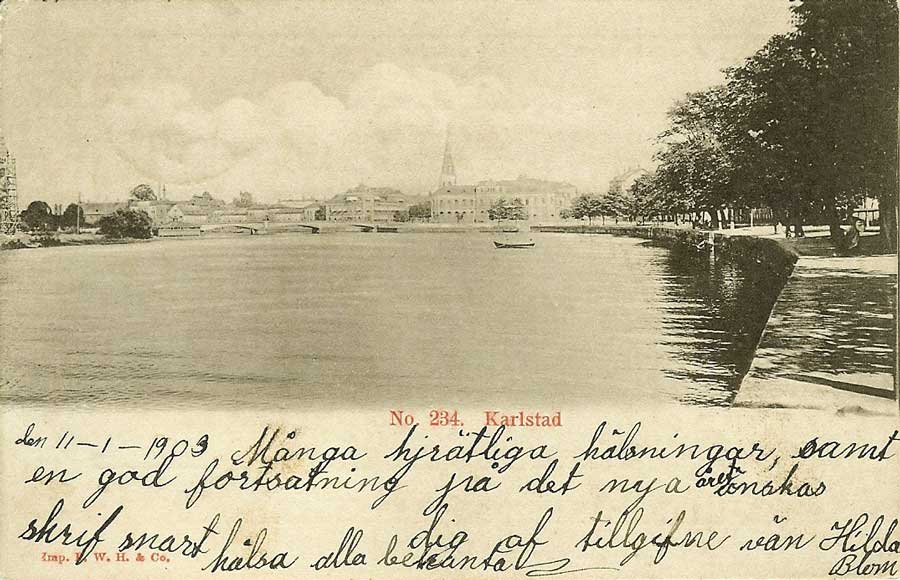 No. 234. Karlstad
den 11-1-1903 Många hjrätliga hälsningar, samt
en god fortsatning på det nya året önskas
skrif snart hälsa alla bekanta dig af tillgifne vän Hilda
Blom
W. H. & Co.